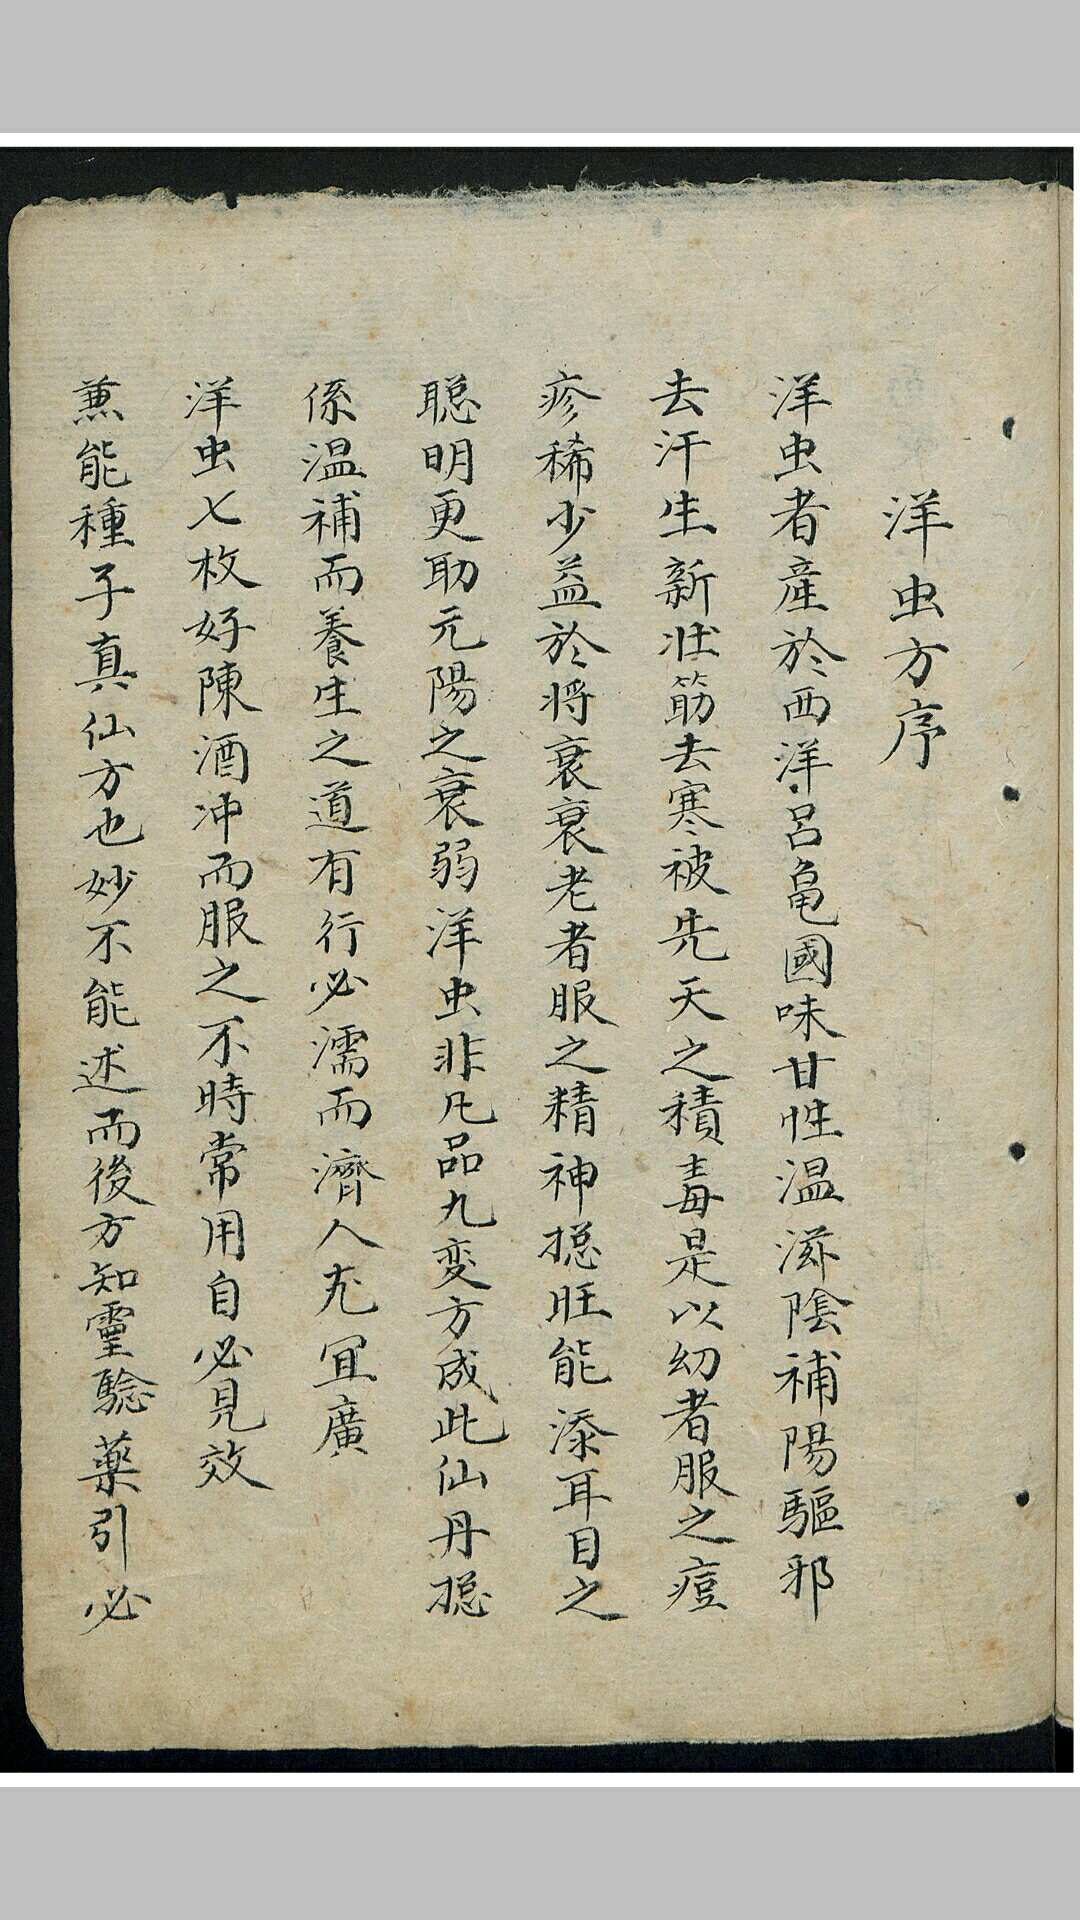 洋虫方序
洋虫者産於西洋呂亀國味甘性温滋陰補陽驅邪
去汗生新壮筋去寒被先天之積毒是以幼者服之痘
疹稀少益於将衰衰老者服之精神摠旺能添耳目之
聡明更助元陽之衰弱洋虫非凡品九变方成此仙丹摠
係温補而養生之道有行必濡而濟人尤宜廣
洋虫七枚好陳酒冲而服之不時常用自必見效
兼能種子真仙方也妙不能述而後方知靈騐藥引必